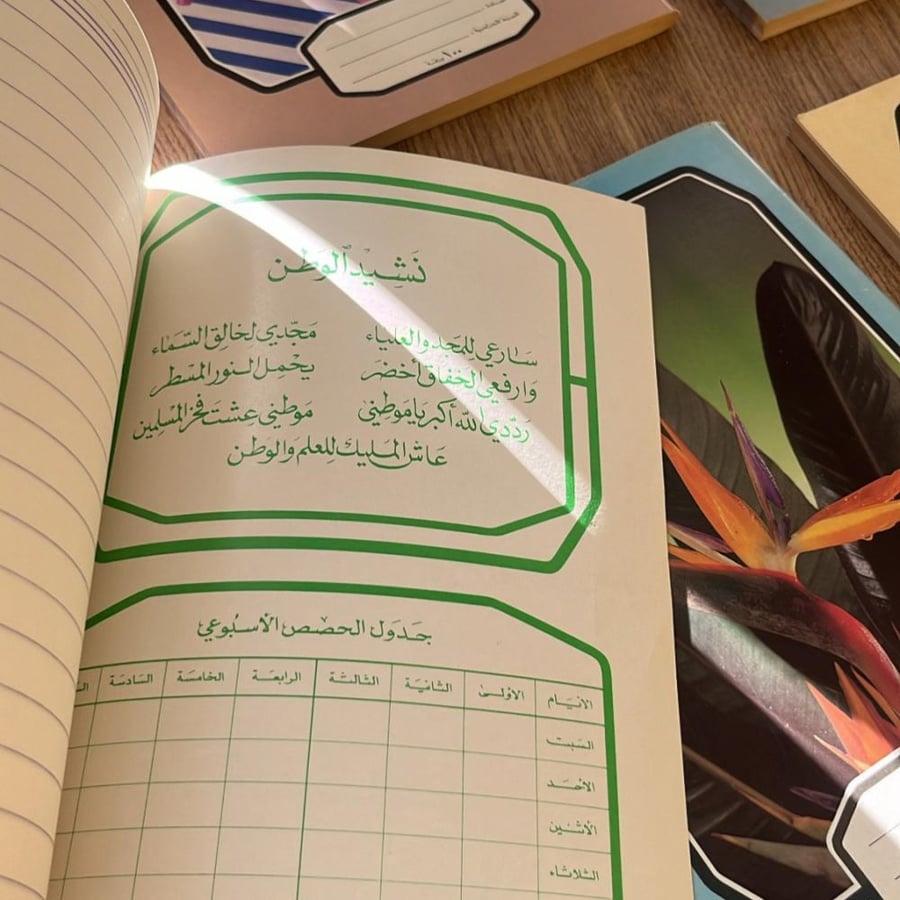 السنة الدراسية
١٠٠ ورقة
نَشِيد الوَطَن
سَارعي للمَجد والعَلياء مَجّدي لخالق السّمَاء
وَارفعي الخفاق أخضَر يحْمِل النور المسَطر
ردّدي الله أكبر يَا مَوطني مَوطني عشتَ فخر المسْلمين
عَاش المَليك للعلم وَالوطَن
جَدوَل الحصَص الأسبُوعي
الأيام الأولى الثانية الثالثة الرابعة الخامسة السادسة
السبت
الأحد
الأثنين
الثلاثاء